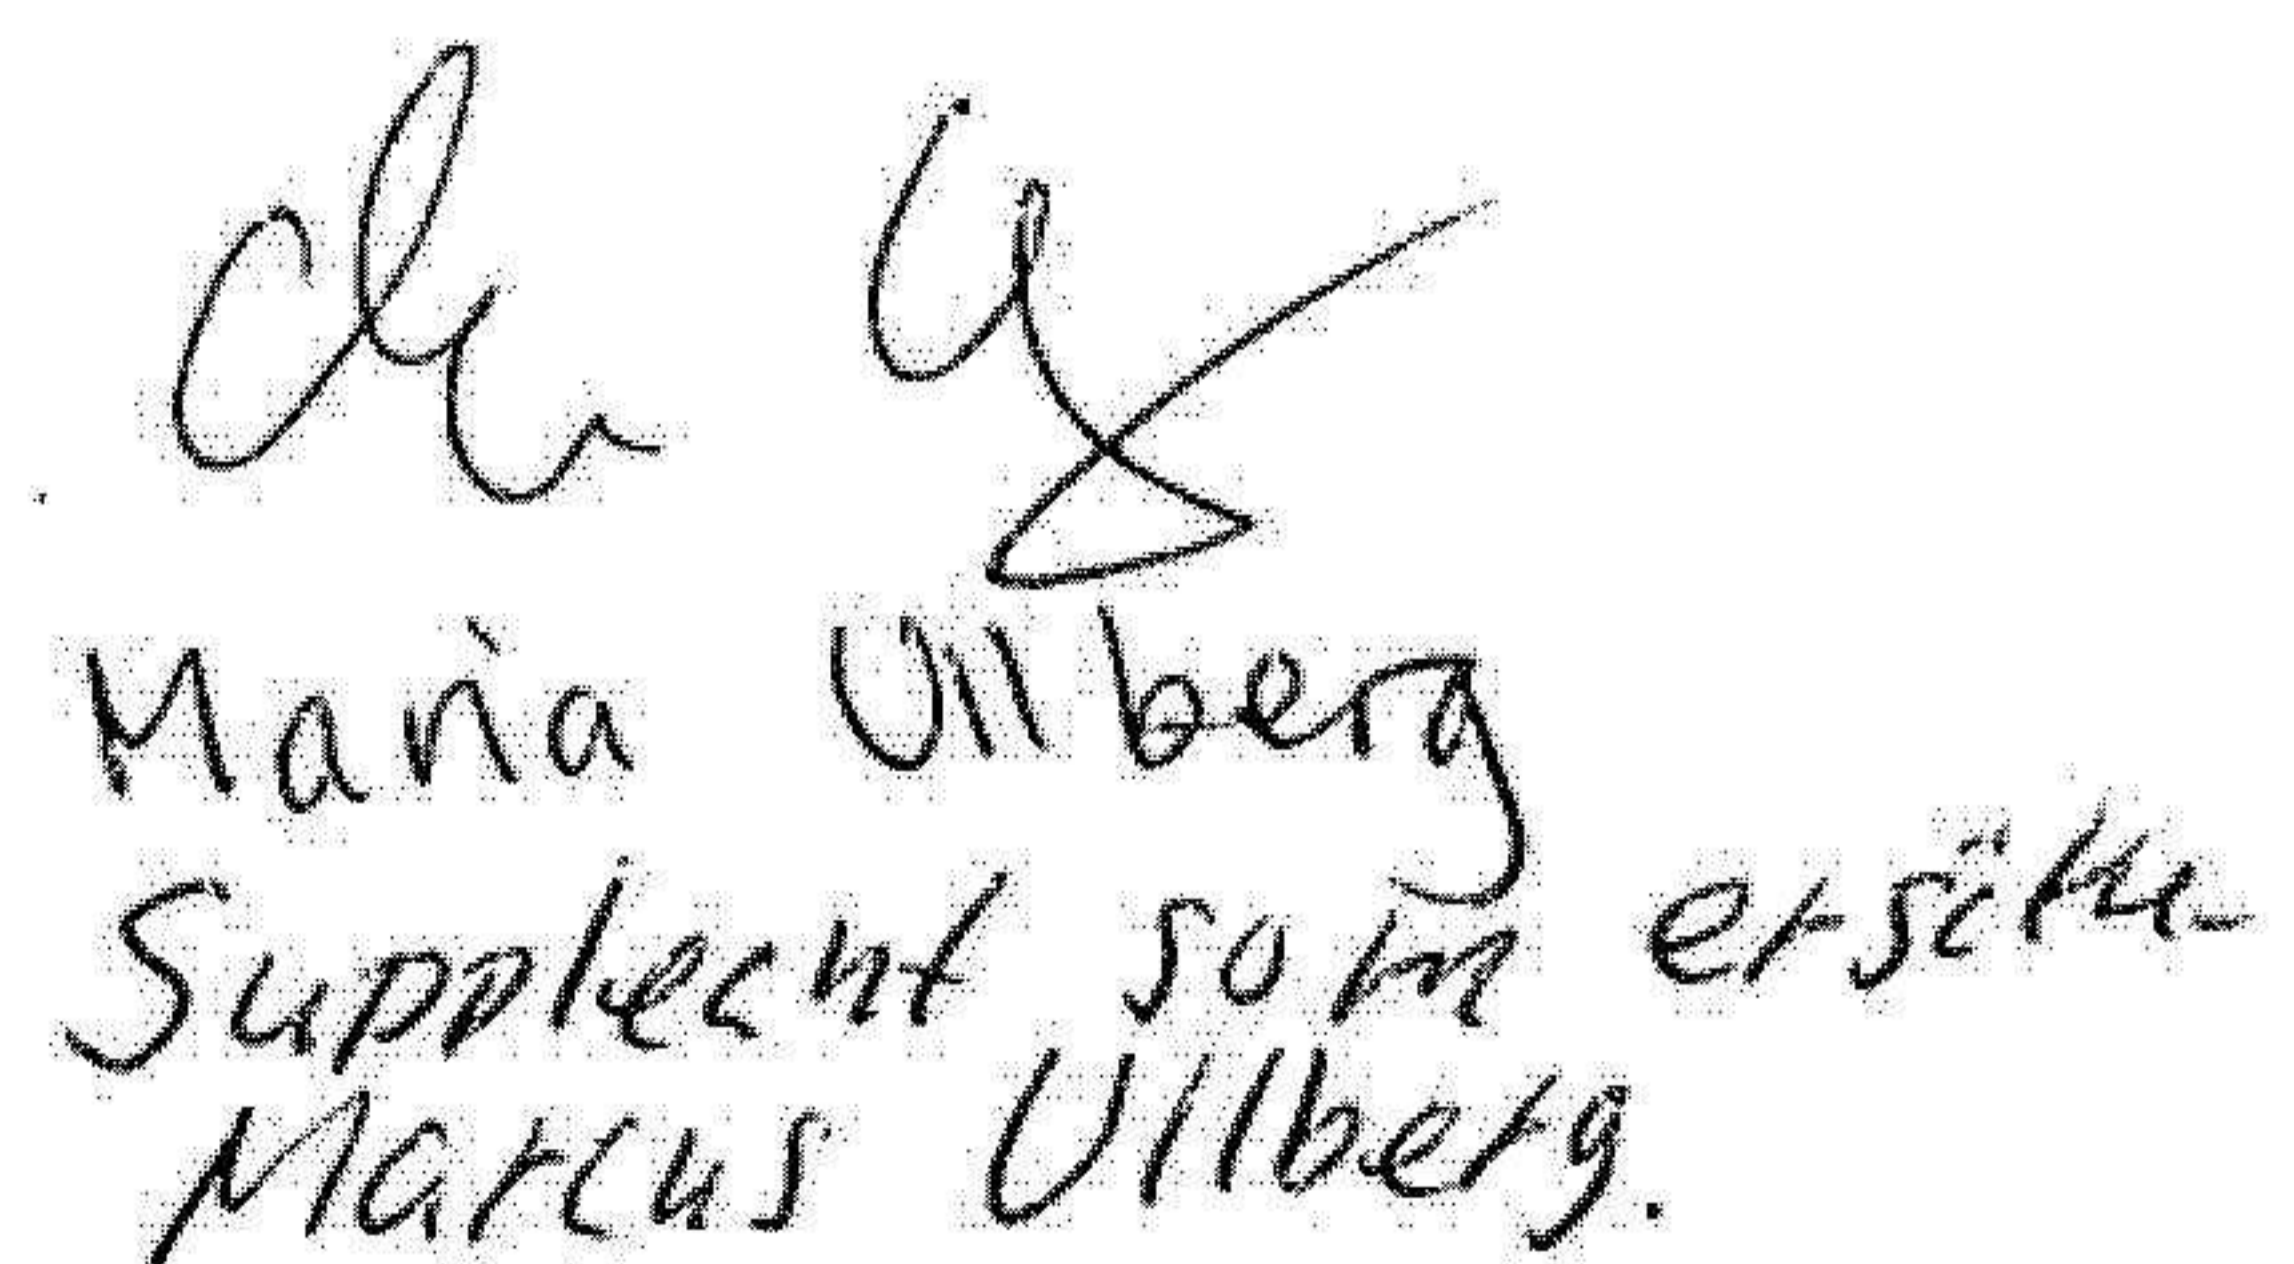 Maria Ullberg
Suppleant som ersätter
Marcus Ullberg.